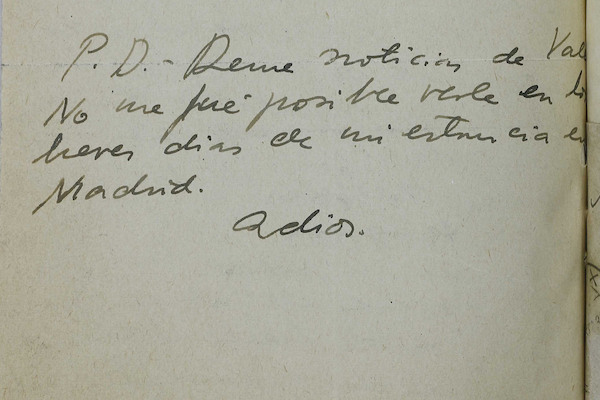 P. D.- Deme noticias de
No me fué posible verle en
breves dias de mi estancia en
Madrid.
Adios.